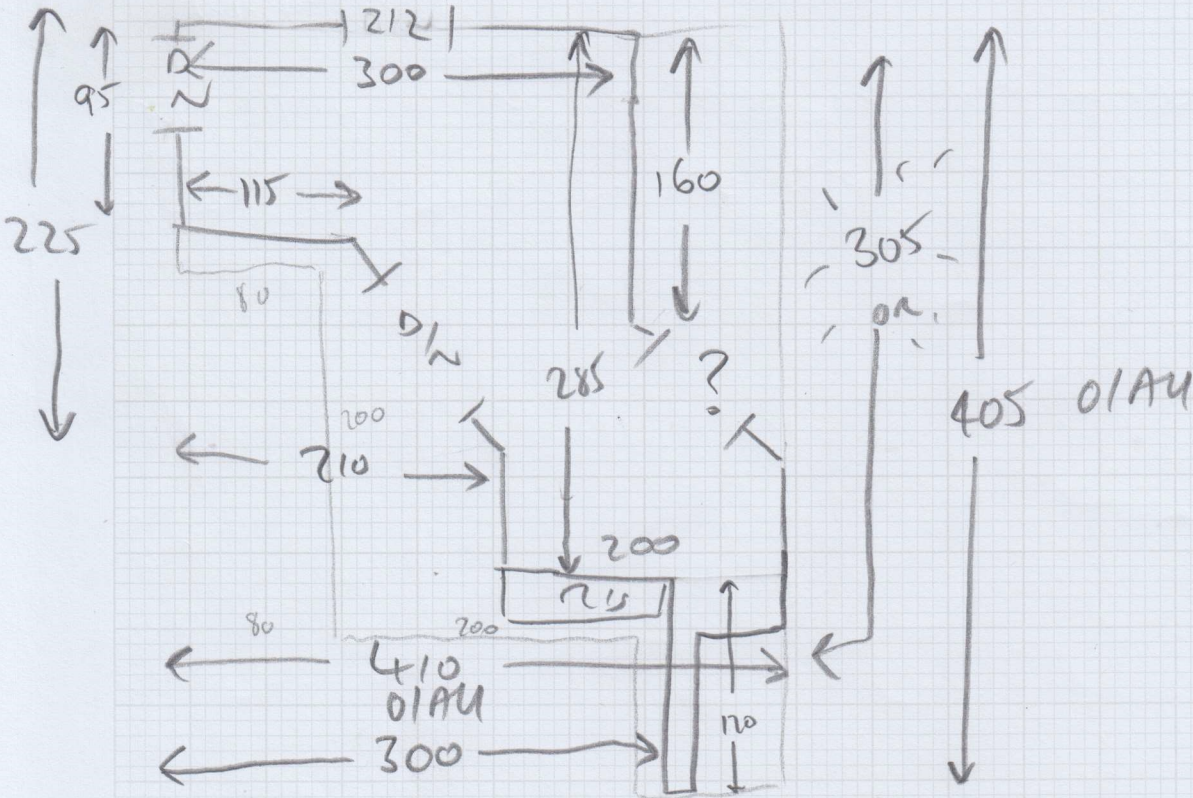 212
300
95
115
160
225
305
OR
80
D/N
?
285
405 O/ALL
200
210
200
215
80
200
410
O/ALL
120
300